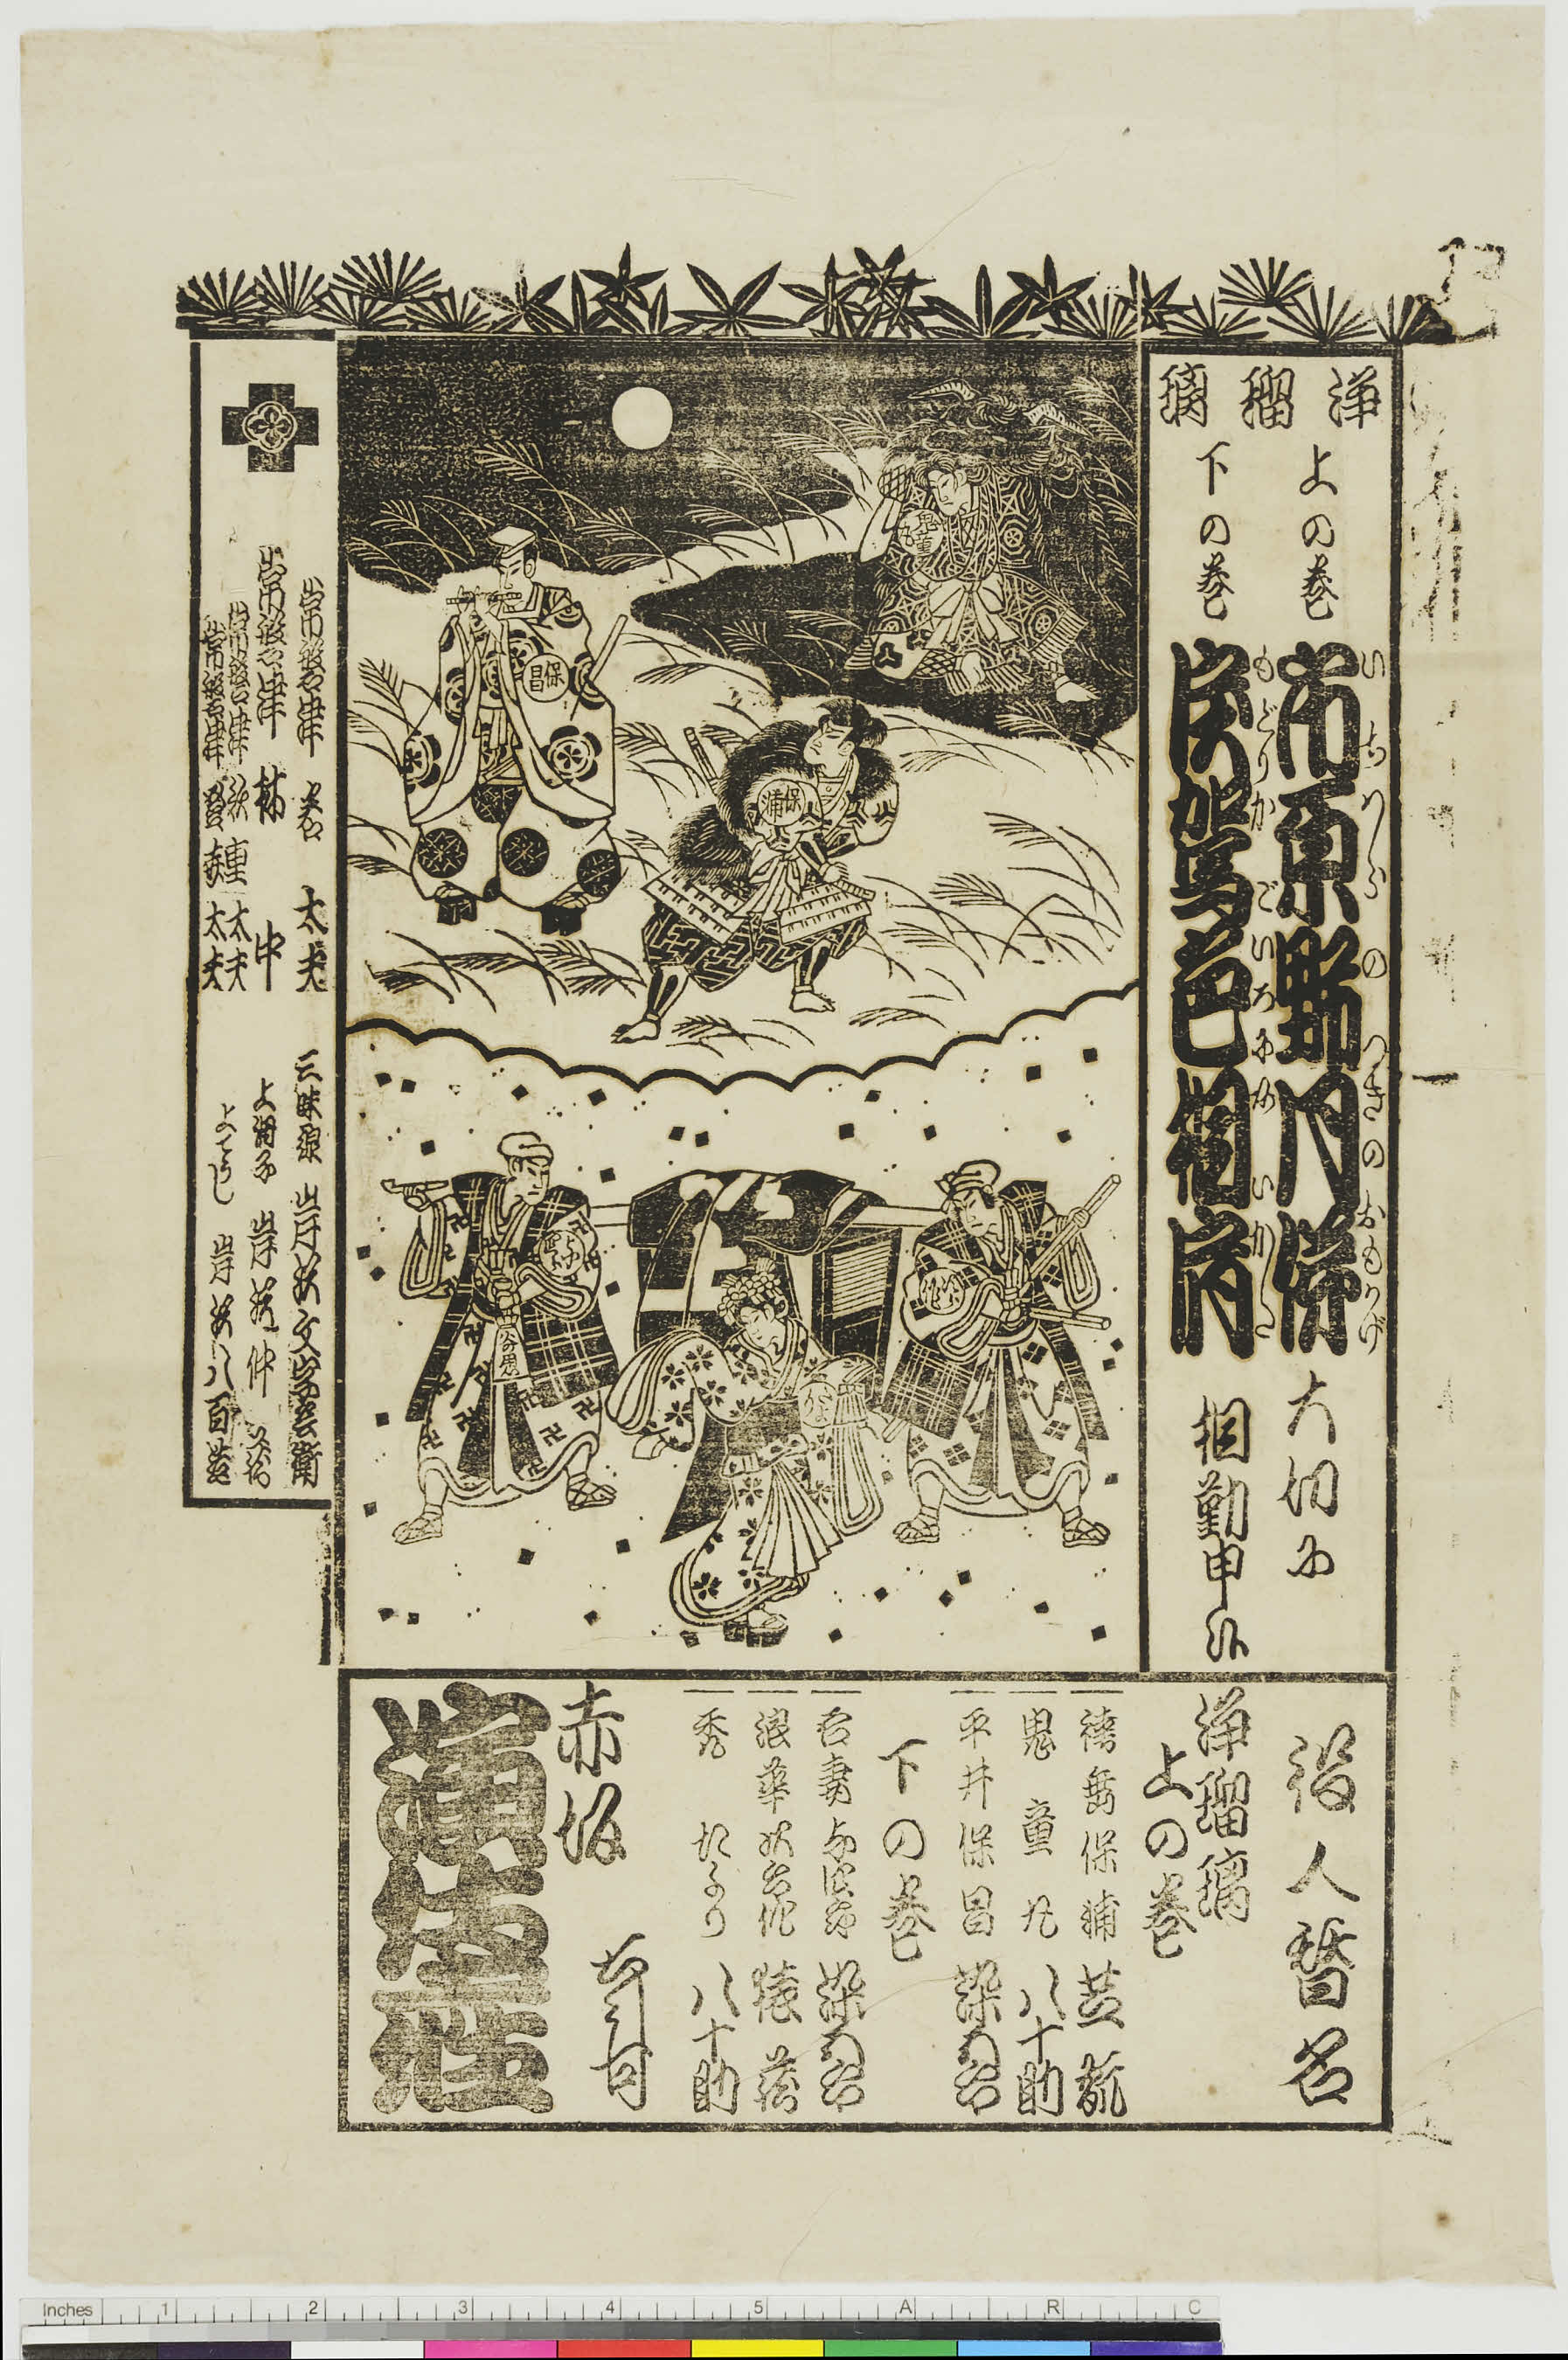 浄瑠璃
上の巻
市原野月俤
いちはらのつきのおもかげ
大切に
下の巻
戻駕色相肩
もどりかごいろにあいかた
相勤申候
保昌
鬼童丸
保浦
役人替名
浄瑠璃
上の巻
袴垂保浦
鬼童丸 八十助
平井保昌 染五郎
下の巻
吾妻与四郎 染五郎
浪華次郎作
禿 たより 八十助
赤坂
演伎座
常磐津 太夫
常磐津 林中
常磐津 太夫
常磐津 太夫
三味線 岸沢文字兵衛
上調子 岸沢仲助
岸沢八百
Inches 1 2 3 4 5 A R C